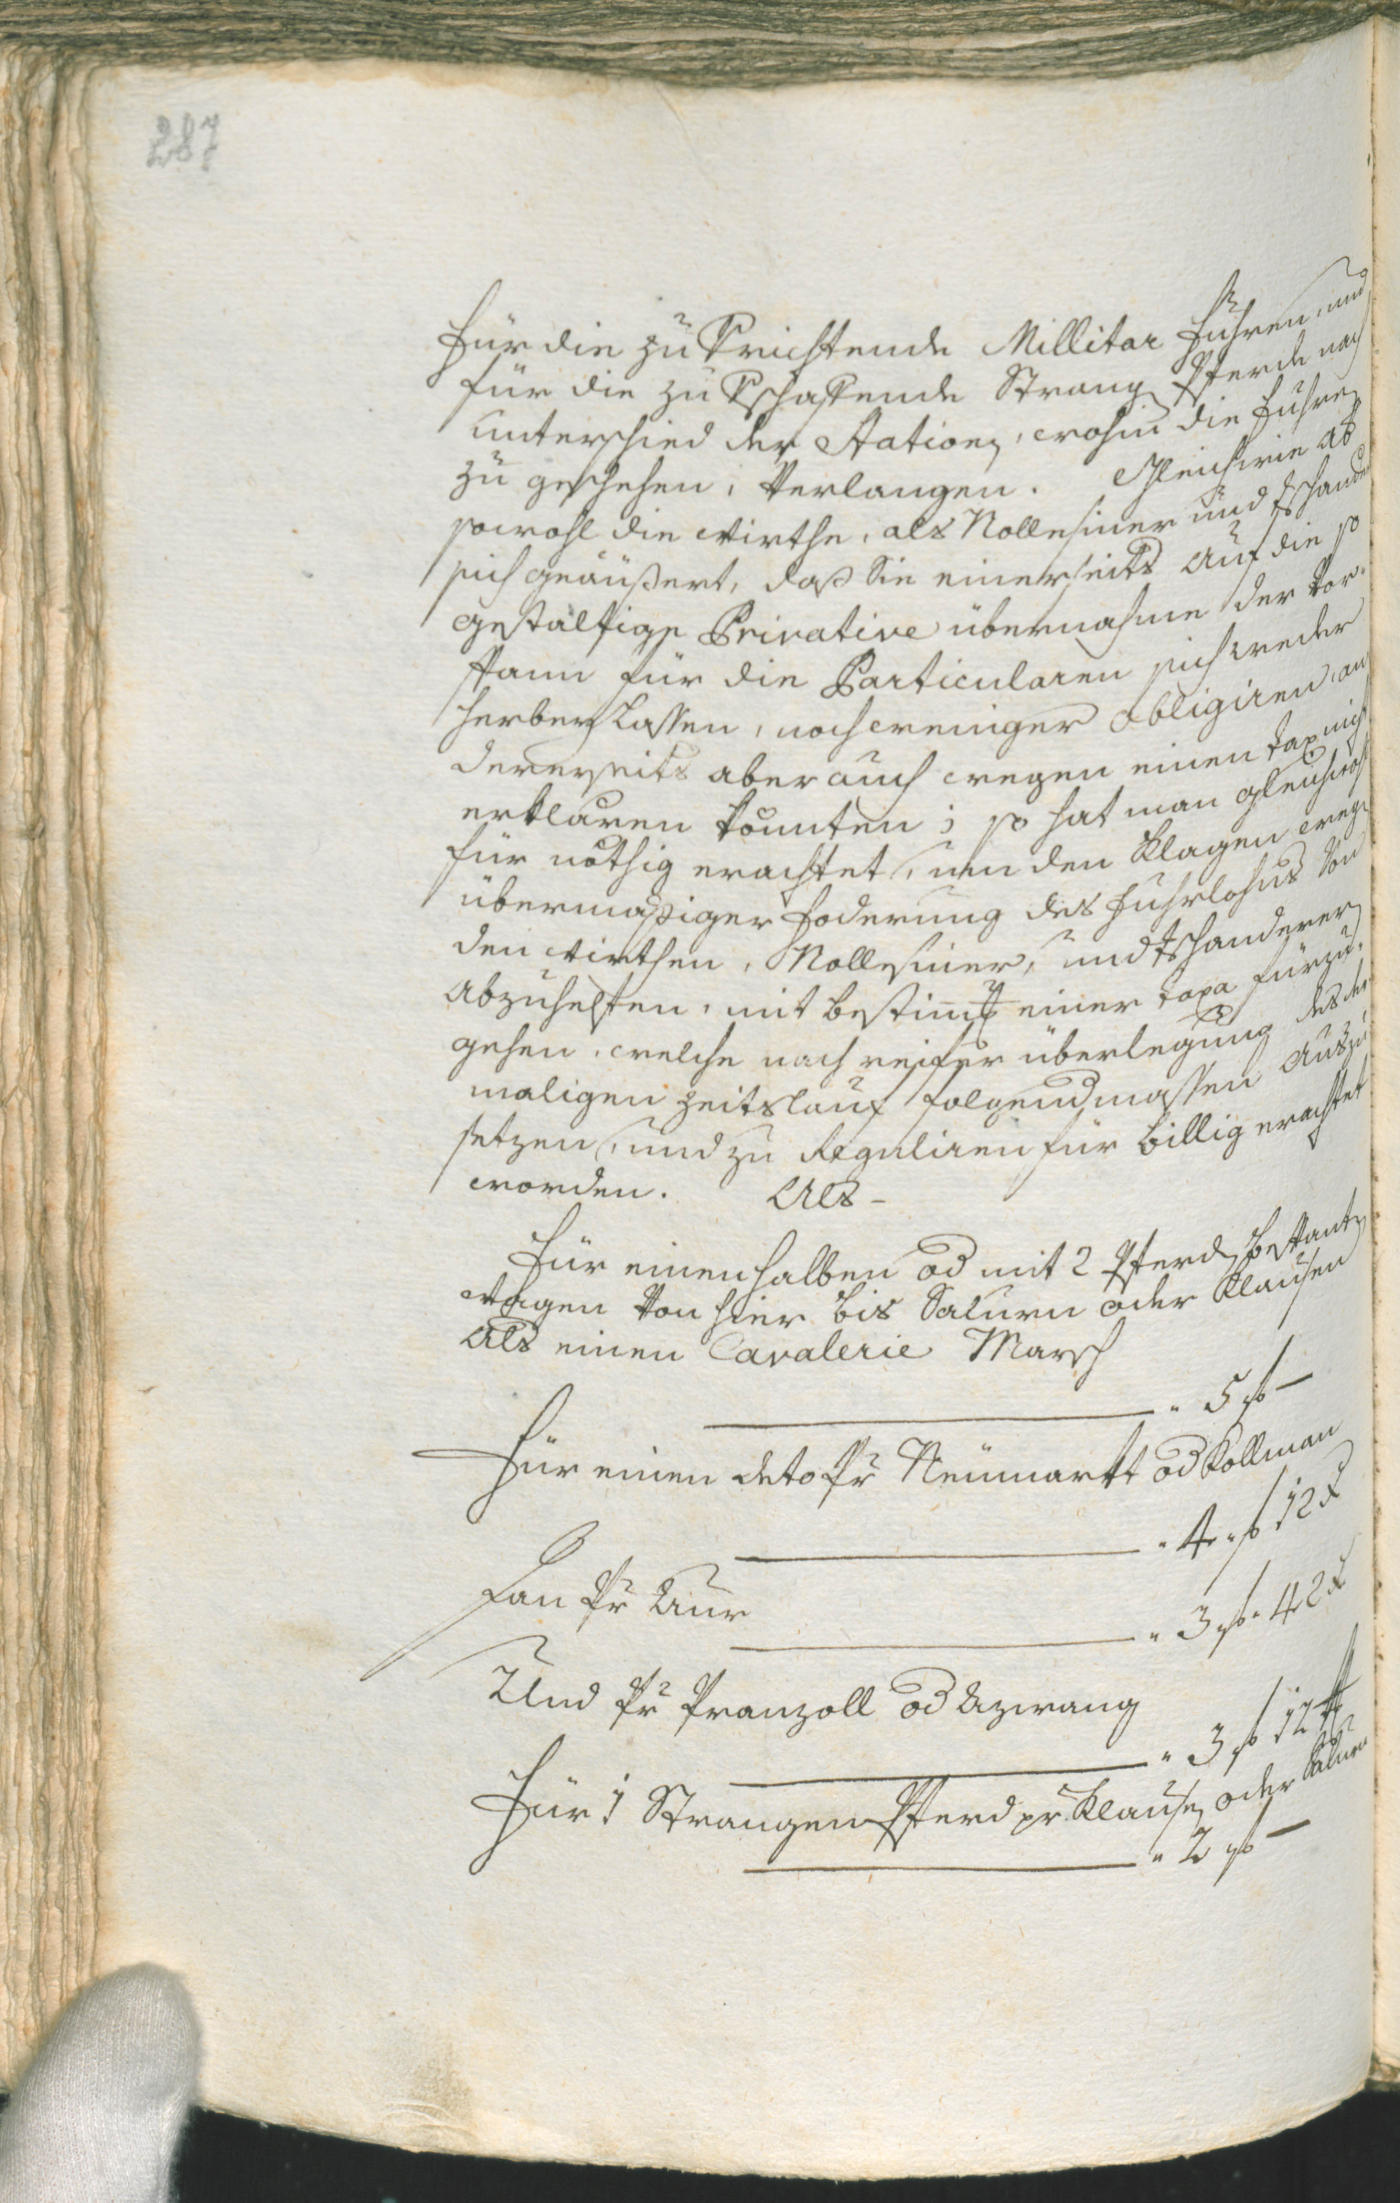 287
für die zu Vrichtende Millitar Fuhren, und
für die zu Vschaffende Strang Pferde nach
unterschied der Station, wohin die Fuhren
zu geschehen, Verlangen. Gleichwie Aber
sowohl die Wirthe, als Nollesiner und Tschanderer
sich geäußert, daß Sie einerseits Auf die so
gestältige Privative übernahme der Vor-
spann für die Particularen sich weder
herbey Lassen, noch weniger obligiren, an
dererseits aber auch wegen einen Tax nicht
erklären konnten; so hat man gleichwohl
für nöthig erachtet, um den Klagen wegen
übermäßiger Foderung des Fuhrlohns Von
den Wirthen, Nollesiner, und Tschanderer
Abzuhelfen, mit bestimmung einer Taxa fürzu-
gehen, welche nach reifer überlegung des der
maligen Zeitslauf folgendmassen Auszu
setzen, und zu Reguliren für billig erachtet
worden. Als –
Für einen halben od mit 2 Pferd bespanten
Wagen Von hier bis Salurn oder Klausen
Als einen Cavalerie Marsch
" 5 f –
Für einen deto Pr Neumarkt od Kollman
" 4 f 12 x
Pr Aur
" 3 f 42 x
Und Pr Pranzoll od Azwang
" 3 f 12 x
Für 1 Strangen Pferd pr Klausen oder Salurn
" 2 f –